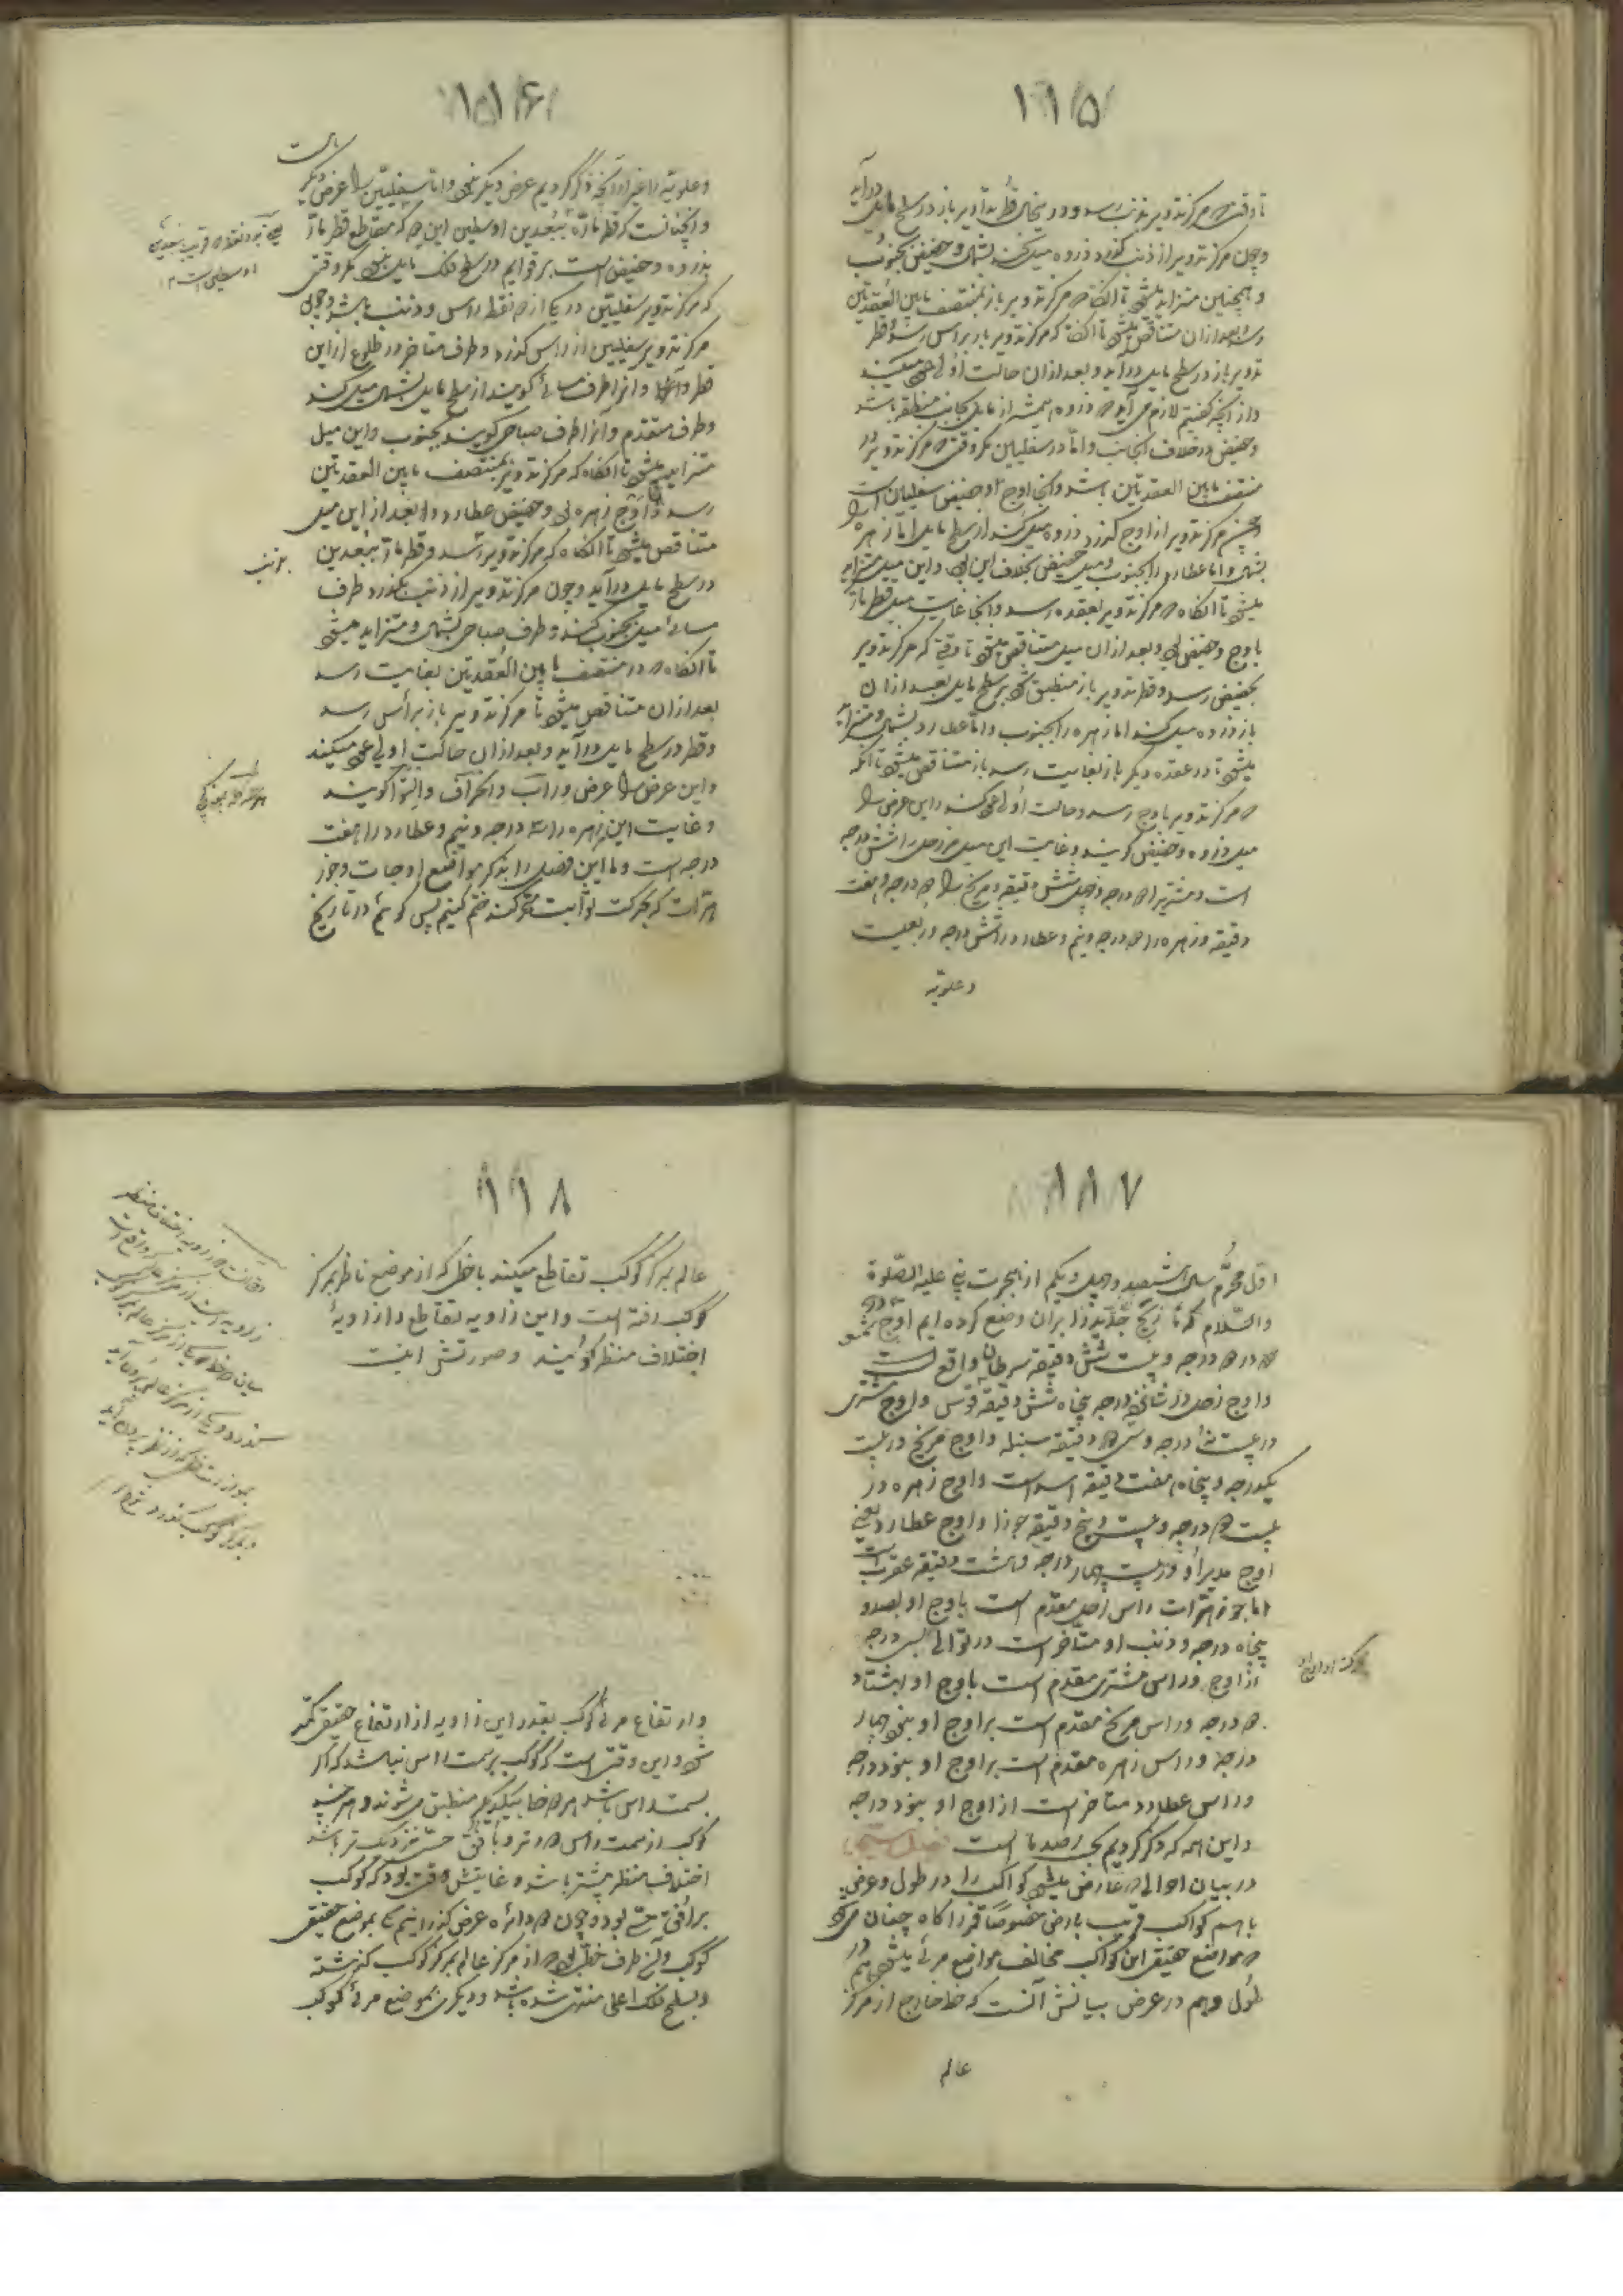 ۱۱۵
تا وقتی که مرکز تدویر بذنب رسد و در اینجا قطر تدویر باز در سطح مایل درآید
و چون مرکز تدویر از ذنب گذرد ذروه میل کند بشمال و حضیض بجنوب
و همچنین متزاید میشود تا آنگاه که مرکز تدویر باز بمنتصف مابین العقدتین
رسد و بعد ازان متناقص میشود تا آنگه که مرکز تدویر باز براس رسد و قطر
تدویر باز در سطح مایل درآید و بعد ازان حالت اولی عود میکند
و از آنچه گفتیم لازم می آید که ذروه همیشه از مایل بجانب منطقه باشد
و حضیض در خلاف آنجانب و اما در سفلیین مگر وقتی که مرکز تدویر در
منتصف مابین العقدتین باشد و آنجا اوج و حضیض سفلیان است
و چون مرکز تدویر از اوج گذرد ذروه میل کند از سطح مایل اما زهره را
بشمال و اما عطارد را بجنوب و میل حضیض بخلاف این بود و این میل متزاید
میشود تا آنگاه که مرکز تدویر بعقده رسد و آنجا غایت میل قطر مار
باوج و حضیض بود و بعد ازان میل متناقص میشود تا وقتی که مرکز تدویر
بحضیض رسد و قطر تدویر باز منطبق شود بر سطح مایل بعد ازان
باز ذروه میل کند اما زهره را بجنوب و اما عطارد بشمال و متزاید
میشود تا در عقده دیگر باز بغایت رسد باز متناقص میشود تا آنگه
که مرکز تدویر باوج رسد و حالت اولی عود کند و این عرض را
میل ذروه و حضیض گویند و غایت این میل مر زحل را شش درجه
دقیقه و زهره را دو درجه و نیم و عطارد را شش درجه و ربعیست
و علویه
۱۱۶
و علویه را غیر از آنچه ذکر کردیم عرض دیگر نبود و اما سفلیین را عرض دیگر است
و آنچنانست که قطر ماره ببعدین اوسطین این که مقاطع قطر مار
بذروه و حضیض است بر قوایم در سطح فلک مایل نبود مگر وقتی
که مرکز تدویر سفلیین در یکی از دو نقطه راس و ذنب باشد و چون
مرکز تدویر سفلیین از راس گذرد و طرف متاخر در طلوع از این
قطر و آنرا طرف مسائی گویند از سطح مایل بشمال میل کند
و طرف متقدم و آنرا طرف صباحی گویند بجنوب و این میل
متزاید میشود تا آنگاه که مرکز تدویر بمنتصف مابین العقدتین
رسد و اوج زهره بود و حضیض عطارد و بعد از این میل
متناقص میشود تا آنگاه که مرکز تدویر رسد و قطر مار ببعدین
بذنب
در سطح مایل درآید و چون مرکز تدویر از ذنب بگذرد طرف
مسائی میل بجنوب کند و طرف صباحی بشمال و متزاید میشود
تا آنگاه که در منتصف مابین العقدتین بغایت رسد
بعد ازان متناقص میشود تا مرکز تدویر باز براس رسد
و قطر در سطح مایل درآید و بعد ازان حالت اولی عود میکند
و این عرض را عرض وراب و انحراف و التوا گویند
و غایت این زهره را سه درجه و نیم و عطارد را هفت
درجه است و ما این فصل را بذکر مواضع اوجات و جوز
هرات که بحرکت ثوابت متحرکند ختم کنیم پس گوئیم در تاریخ
۱۱۷
اول محرم سال ششصد و چهل و یکم از هجرت نبی علیه الصلوة
والسلام که ما زیج جدید را بران وضع کرده ایم اوج شمس
در دو درجه و بیست و شش دقیقه سرطان واقع است
و اوج زحل در شانزده درجه و پنجاه شش دقیقه قوس و اوج مشتری
در بیست درجه و سی دقیقه سنبله و اوج مریخ در بیست
یکدرجه و پنجاه هفت دقیقه اسد است و اوج زهره در
بیست دو درجه و بیست و پنج دقیقه جوزا و اوج عطارد یعنی
اوج مدیر او در بیست چهار درجه و هشت دقیقه عقرب است
اما جوزهرات راس زحل مقدم است باوج او بصد و
پنجاه درجه و ذنب او متاخر است در توالی بسی درجه
از اوج و راس مشتری مقدم است باوج او بهشتاد
دو درجه و راس مریخ مقدم است بر اوج او بنود چهار
درجه و راس زهره مقدم است بر اوج او بنود درجه
و راس عطارد متاخر است از اوج او بنود درجه
و این همه که ذکر کردیم بحسب رصد ما است
در بیان احوالی که عارض میشود کواکب را در طول و عرض
باسم کواکب قریب بارض خصوصا قمر را گاه چنان می شود
که مواضع حقیقی این کواکب مخالف مواضع مرئی میشود هم در
طول و هم در عرض بیانش آنست که خط خارج از مرکز
عالم
۱۱۸
عالم بمرکز کوکب تقاطع میکند با خطی که از موضع ناظر بمرکز
کوکب رفته است و این زاویه تقاطع را زاویهٔ
اختلاف منظر گویند و صورتش اینست
و ارتفاع مرئی کوکب بقدر این زاویه از ارتفاع حقیقی کمتر
شود و این وقتی است که کوکب بر سمت راس نباشد که اگر
بسمت راس باشد هر دو خط بیکدیگر منطبق می شوند و هر چند
کوکب از سمت راس دورتر و بافق حسی نزدیک تر باشد
اختلاف منظر بیشتر باشد و غایتش وقتی بود که کوکب
بر افق حسی بود و چون دو دائره عرض گذرانیم یکی بموضع حقیقی
کوکب و آن طرف خطی بود که از مرکز عالم بمرکز کوکب گذشته
و بسطح فلک اعلی منتهی شده باشد و دیگری بموضع مرئی کوکب